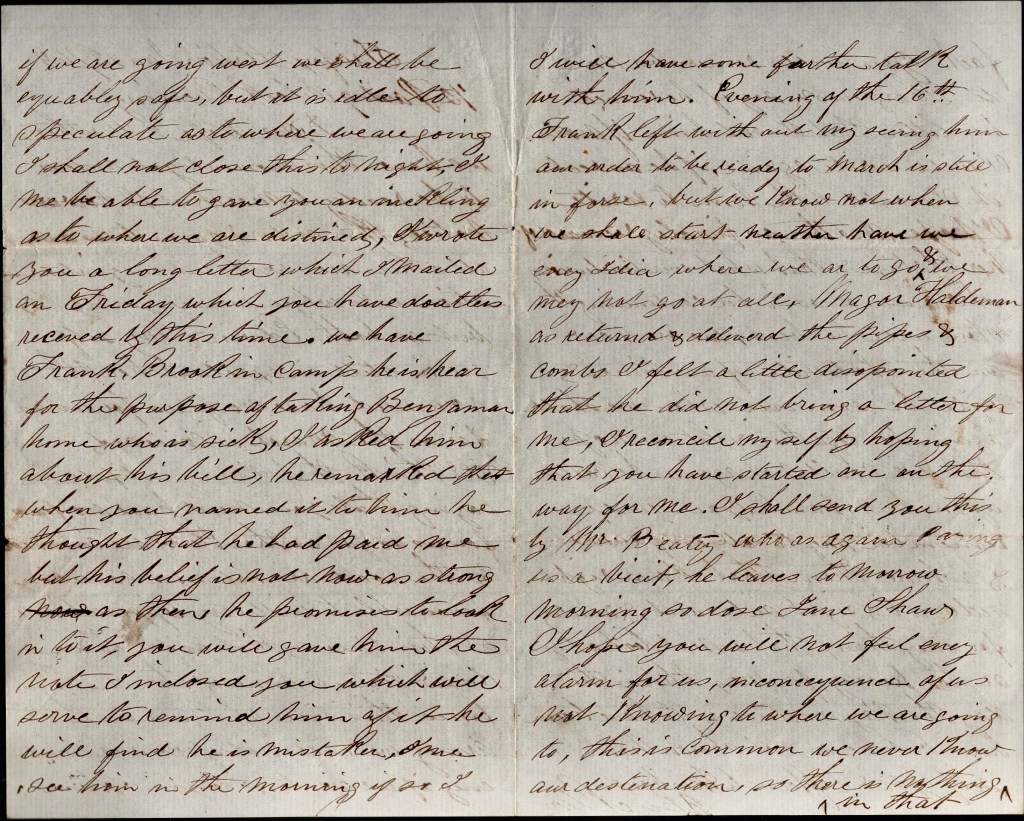 if we are going west we shall be
equabley safe, but it is idle to
speculate as to where we are going
I shall not close this to night, I
me be able to gave you an inckling
as to where we are distined, I wrote
you a long letter which I mailed
an Friday which you have doatless
receved by this time. we have
Frank Brook in camp he is hear
for the purpose of taking Benjamar
home who is sick, I asked him
about his bill, he remarked that
when you named it to him he
thought that he had paid me
but his belief is not now as strong
as then, he promises to look
in to it, you will gave him the
note I inclosed you which will
serve to remind him of it he
will find he is mistaken, I me
see him in the morning if so I
I will have some farther talk
with him. Evening of the 16th
Frank left with out my seeing him
aur order to be ready to march is still
in forse, but we know not when
we shall start neather have we
eney Idia where we ar to go, & we
mey not go at all, Magor Haldeman
as returnd & deleverd the pipes &
combs I felt a little disopointed
that he did not bring a letter for
me, I reconcile my self by hoping
that you have started one on the
way for me. I shall send you this
by Mr Beatey who as again
us a vicit, he leaves to morrow
morning so dose Jane Shaw
I hope you will not feel eney
alarm for us, inconcequence of us
not knowing to where we are going
to, this is common we never know
aur destenation, so there is nything
in that